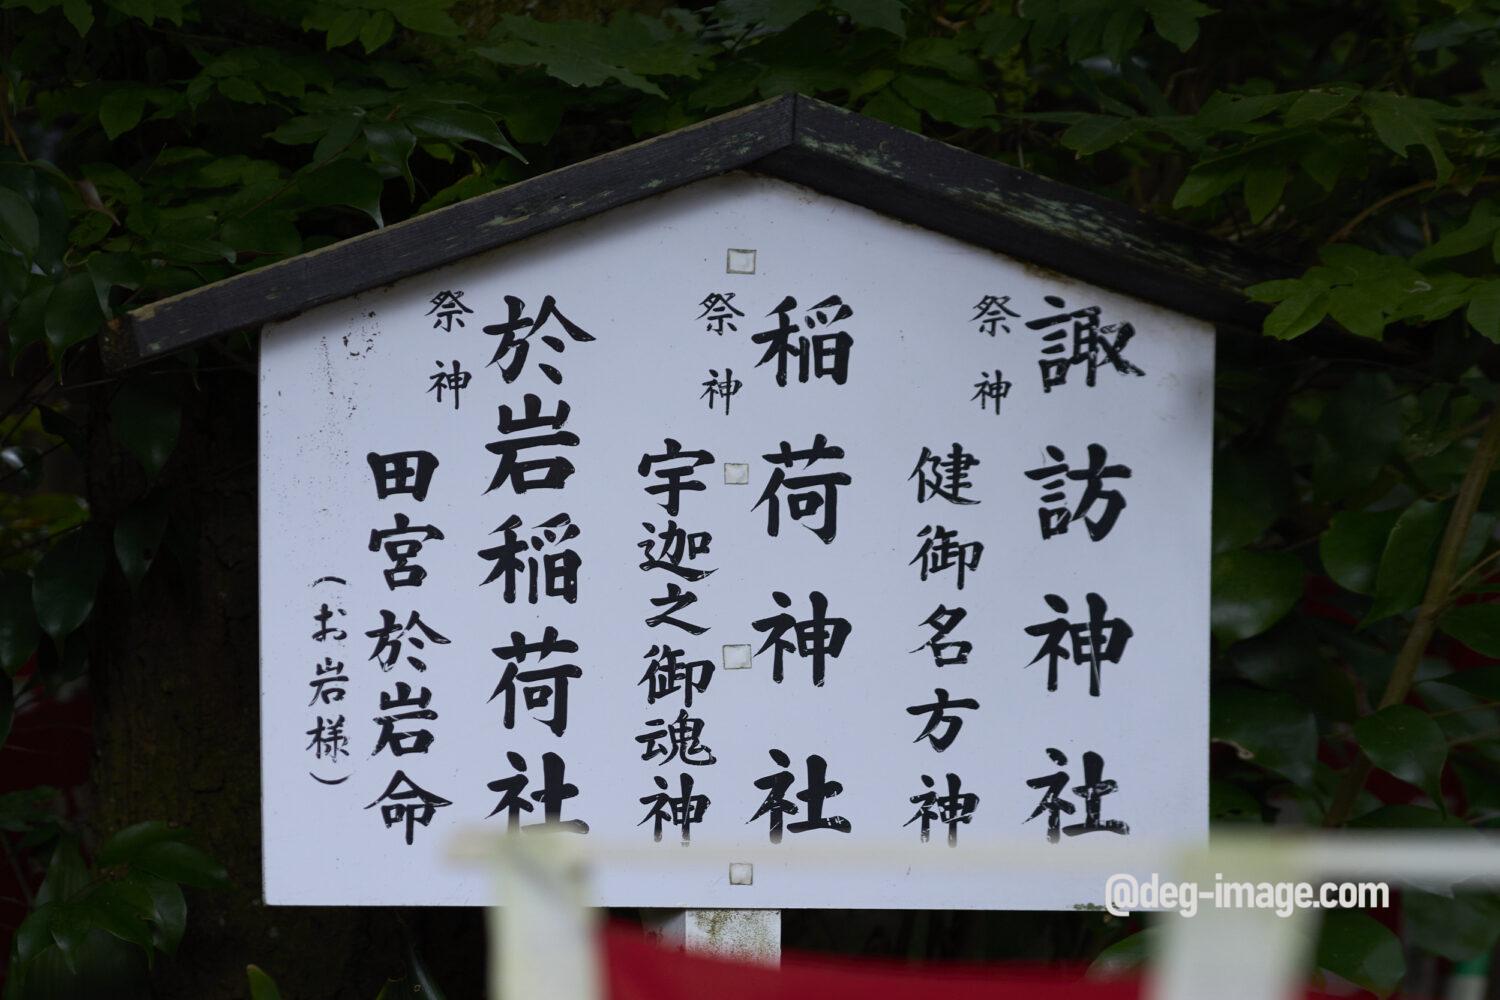 諏訪神社
祭神
健御名方神
稲荷神社
祭神
宇迦之御魂神
於岩稲荷社
祭神
田宮於岩命
(お岩様)
@deg-image.com